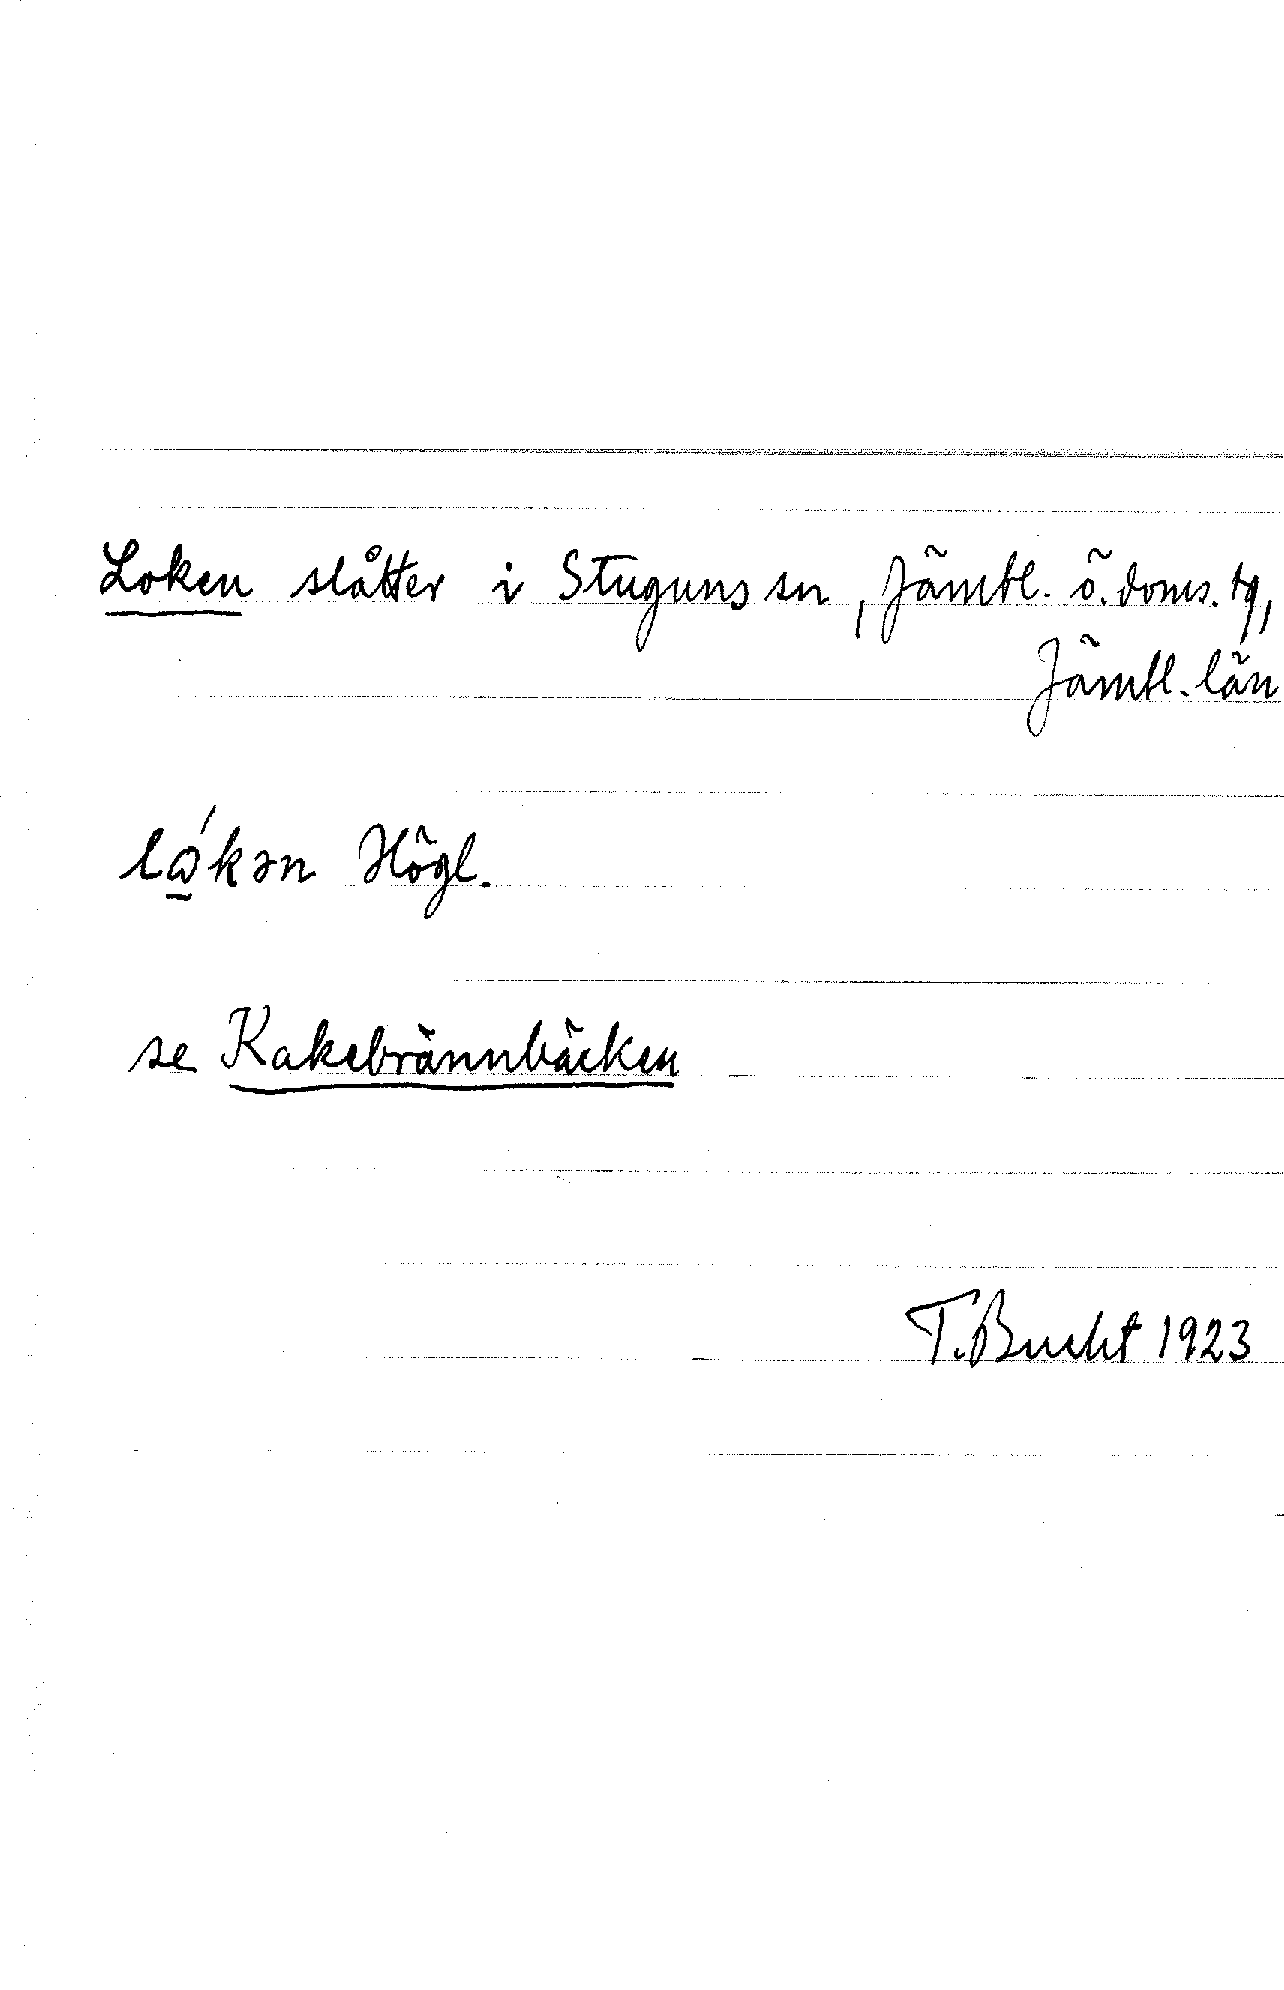 Loken slåtter i Stuguns sn, Jämtl. ö. doms. tg,
Jämtl. län
lǫ́kən Högl.
se Kakebrännbäcken
T. Bucht 1923